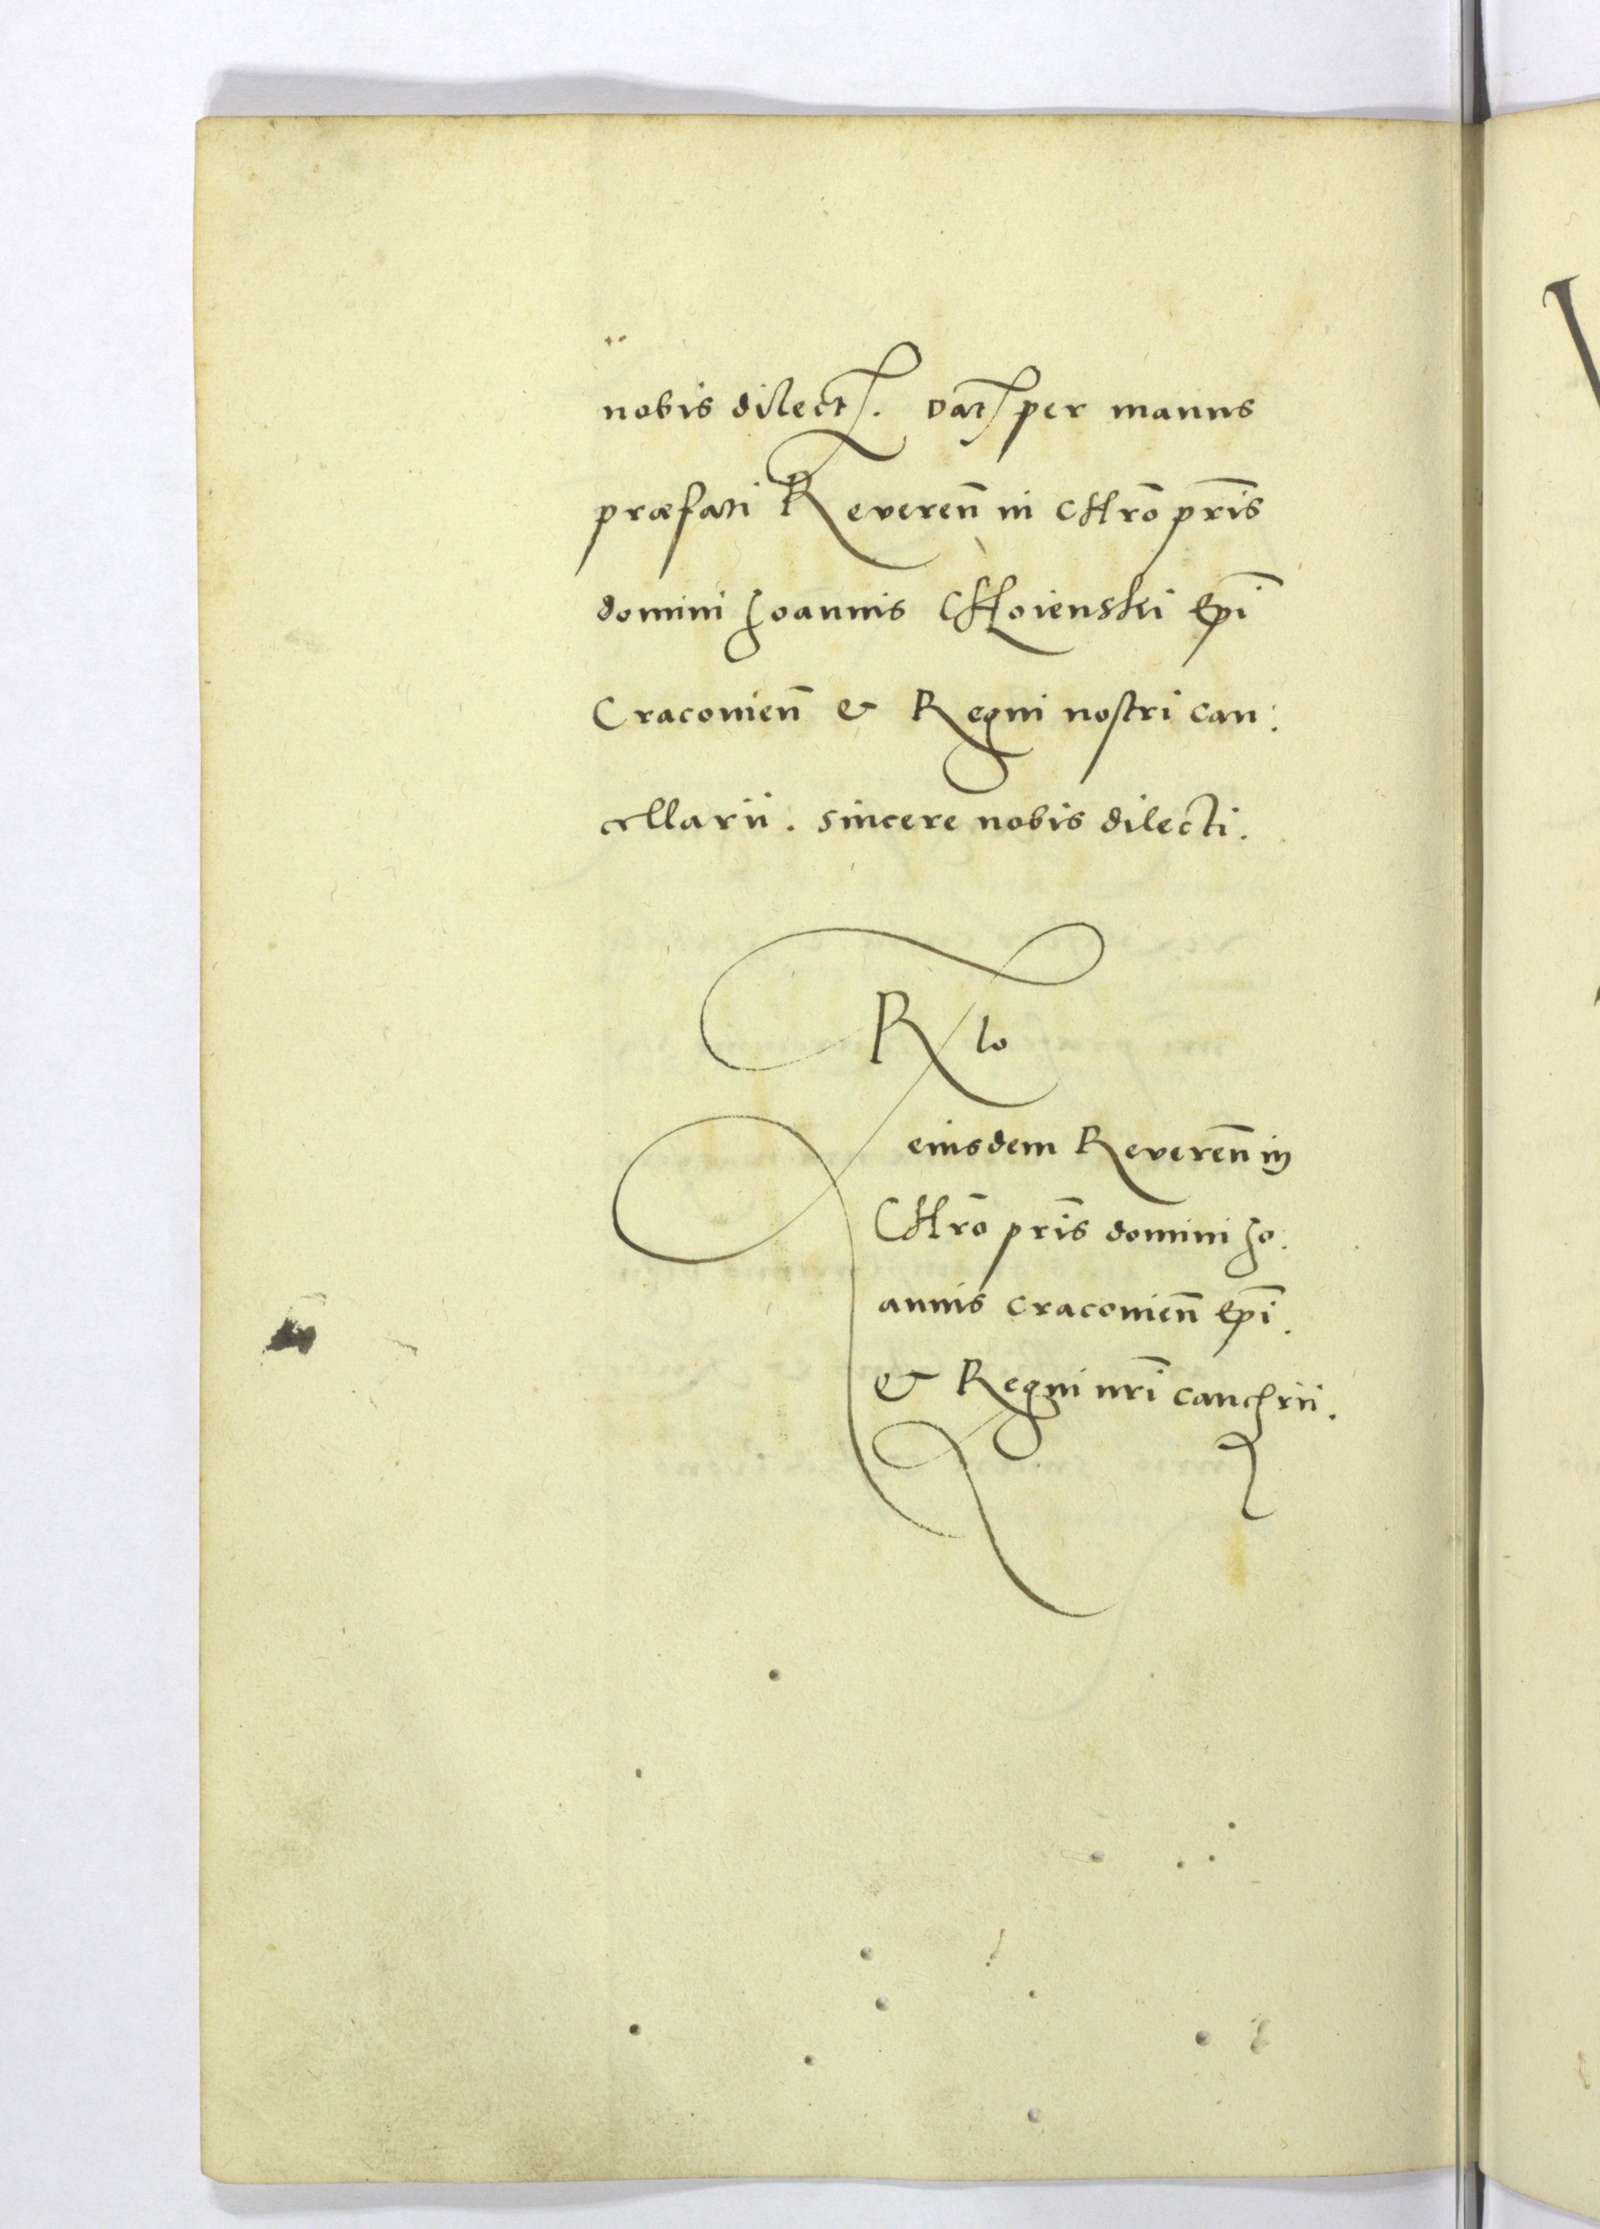 nobis dilect. Dat per manus
præfati Reveren̄ in CHrō pr̄is
domini Joannis CHoienski Ep̄i
Craconien̄ & Regni nostri can:
cellarii. sincere nobis dilecti.
R lo
eiusdem Reveren̄ in
CHrō pr̄is domini Jo:
annis Craconien̄ Ep̄i.
& Regni nr̄i canc̄rii.